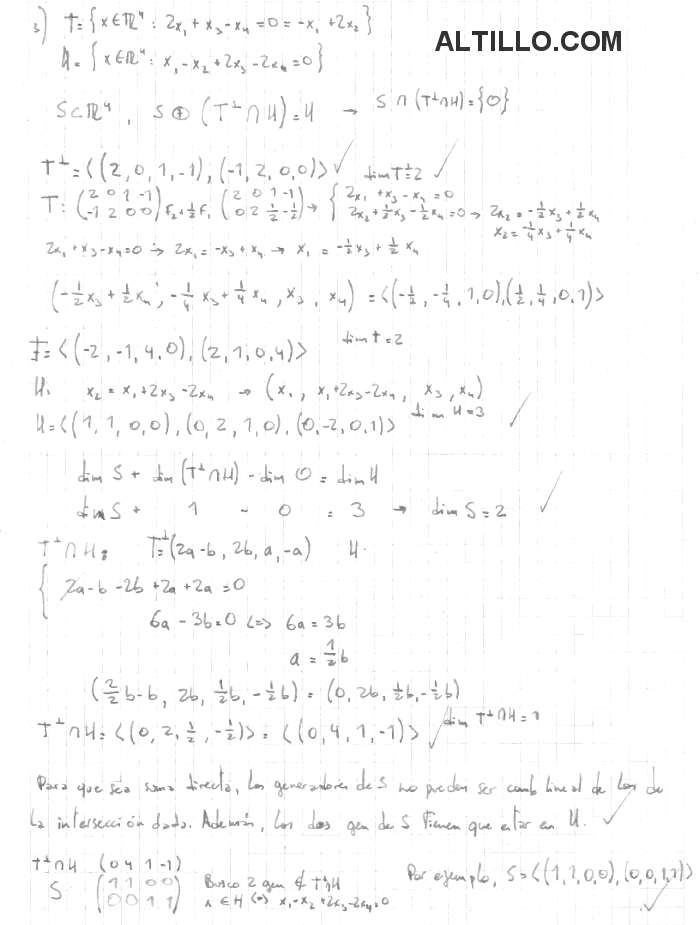 3) T = {x∈ℝ⁴ : 2x₁ + x₃ - x₄ = 0 = -x₁ + 2x₂}
ALTILLO.COM
H = {x∈ℝ⁴ : x₁ - x₂ + 2x₃ - 2x₄ = 0}
S⊂ℝ⁴, S ⊕ (T⊥∩H) = H → S ∩ (T⊥∩H) = {0}
T⊥ = <(2,0,1,-1),(-1,2,0,0)> ✓ dim T⊥=2 ✓
T: (2 0 1 -1 / -1 2 0 0) F₂+½F₁ (2 0 1 -1 / 0 2 ½ -½) → { 2x₁ + x₃ - x₄ = 0
2x₂ + ½x₃ - ½x₄ = 0 → 2x₂ = -½x₃ + ½x₄
x₂ = -¼x₃ + ¼x₄
2x₁ + x₃ - x₄ = 0 → 2x₁ = -x₃ + x₄ → x₁ = -½x₃ + ½x₄
(-½x₃ + ½x₄, -¼x₃ + ¼x₄, x₃, x₄) = <(-½, -¼, 1, 0),(½, ¼, 0, 1)>
T = <(-2, -1, 4, 0), (2, 1, 0, 4)> dim T = 2
H. x₂ = x₁ + 2x₃ - 2x₄ → (x₁, x₁+2x₃-2x₄, x₃, x₄)
H = <(1, 1, 0, 0), (0, 2, 1, 0), (0, -2, 0, 1)> dim H = 3 ✓
dim S + dim (T⊥∩H) - dim 0 = dim H
dim S + 1 - 0 = 3 → dim S = 2 ✓
T⊥∩H: T⊥=(2a-b, 2b, a, -a) H.
{ 2a - b - 2b + 2a + 2a = 0
6a - 3b = 0 <=> 6a = 3b
a = ½b
(2/2 b - b, 2b, ½b, -½b) = (0, 2b, ½b, -½b)
T⊥∩H = <(0, 2, ½, -½)> = <(0, 4, 1, -1)> ✓ dim T⊥∩H = 1
Para que sea suma directa, los generadores de S no pueden ser comb lineal de los de
la intersección dada. Además, los dos gen de S tienen que estar en H. ✓
T⊥∩H (0 4 1 -1)
S (1 1 0 0 / 0 0 1 1) Busco 2 gen ∉ T⊥∩H
∧ ∈ H (=) x₁ - x₂ + 2x₃ - 2x₄ = 0
Por ejemplo, S = <(1, 1, 0, 0), (0, 0, 1, 1)> ✓